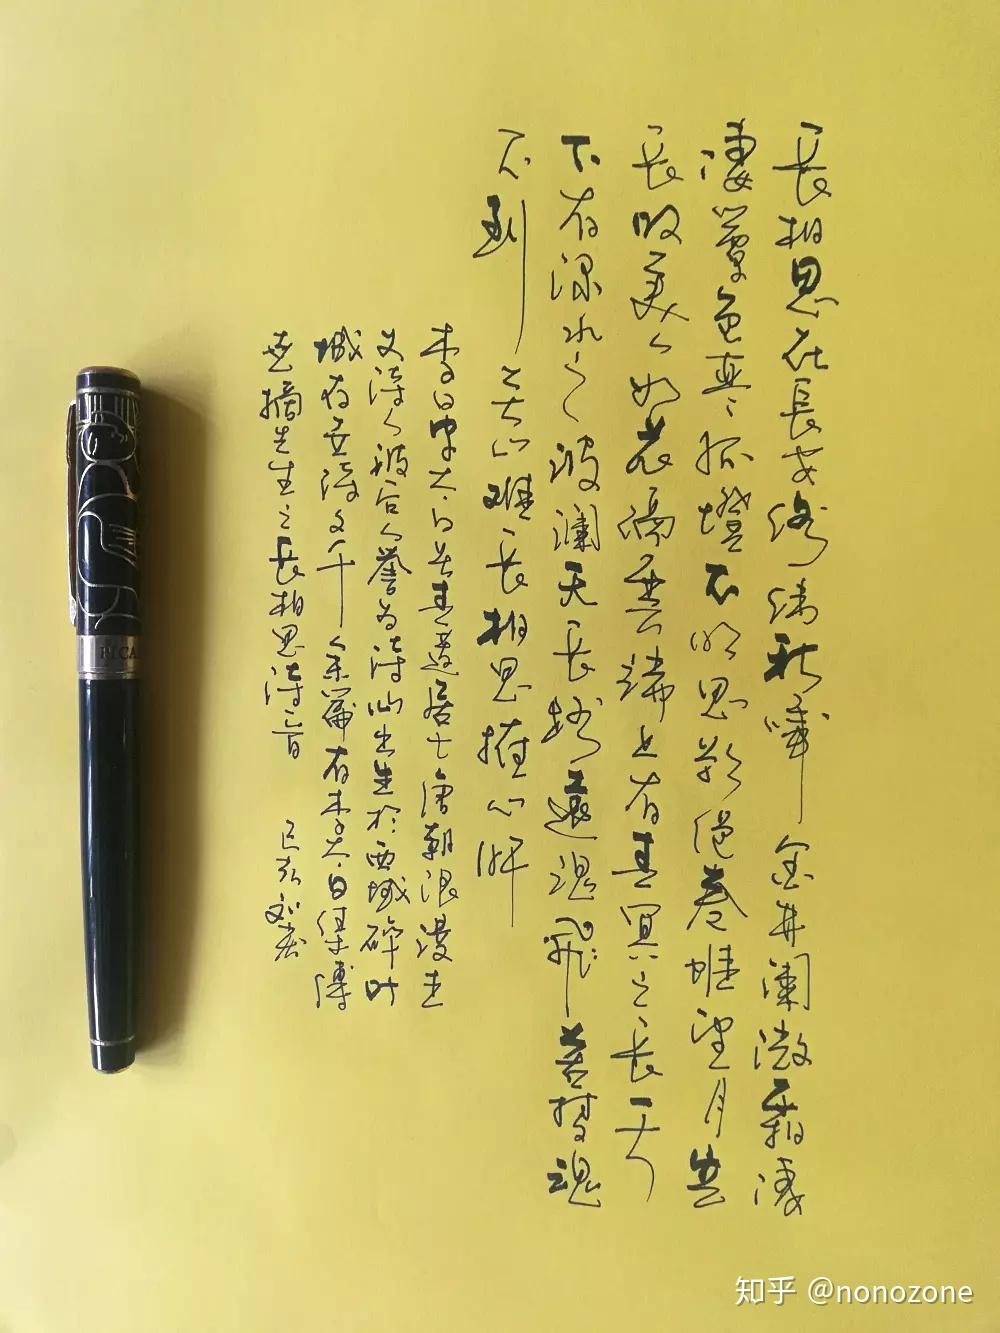 長相思在長安絡緯秋啼金井闌微霜淒
淒簟色寒孤燈不明思欲絕卷帷望月空
長嘆美人如花隔雲端上有青冥之長天
下有渌水之波瀾天長路遠魂飛苦夢魂
不到关山難長相思摧心肝
李白字太白号青蓮居士唐朝浪漫主
义诗人被后人誉为诗仙出生於西域碎叶
城存世诗文千余篇有李太白集傳
世摘先生之長相思诗一首 己亥
PICA
知乎 @nonozone